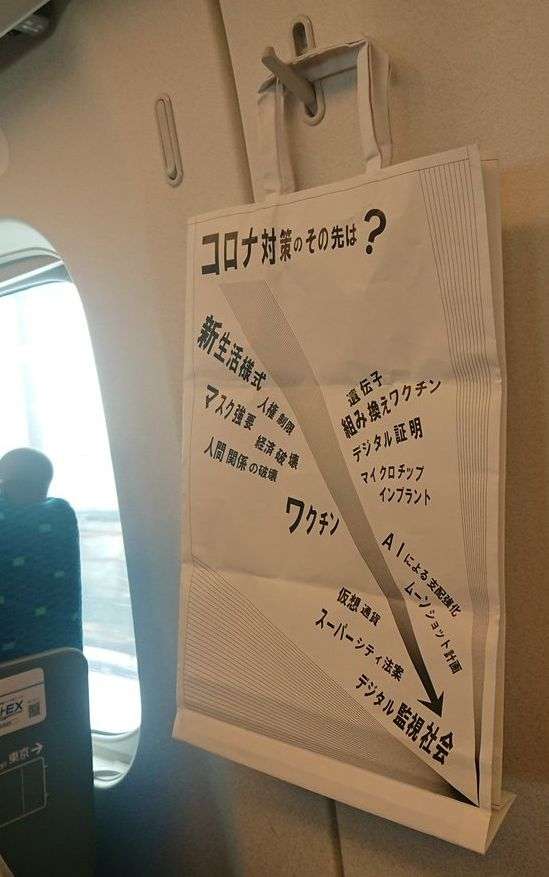 コロナ対策のその先は？
新生活様式
人権制限
マスク強要
経済破壊
人間関係の破壊
ワクチン
遺伝子
組み換えワクチン
デジタル証明
マイクロチップ
インプラント
AIによる支配強化
ムーンショット計画
仮想通貨
スーパーシティ法案
デジタル監視社会
EX
東京→